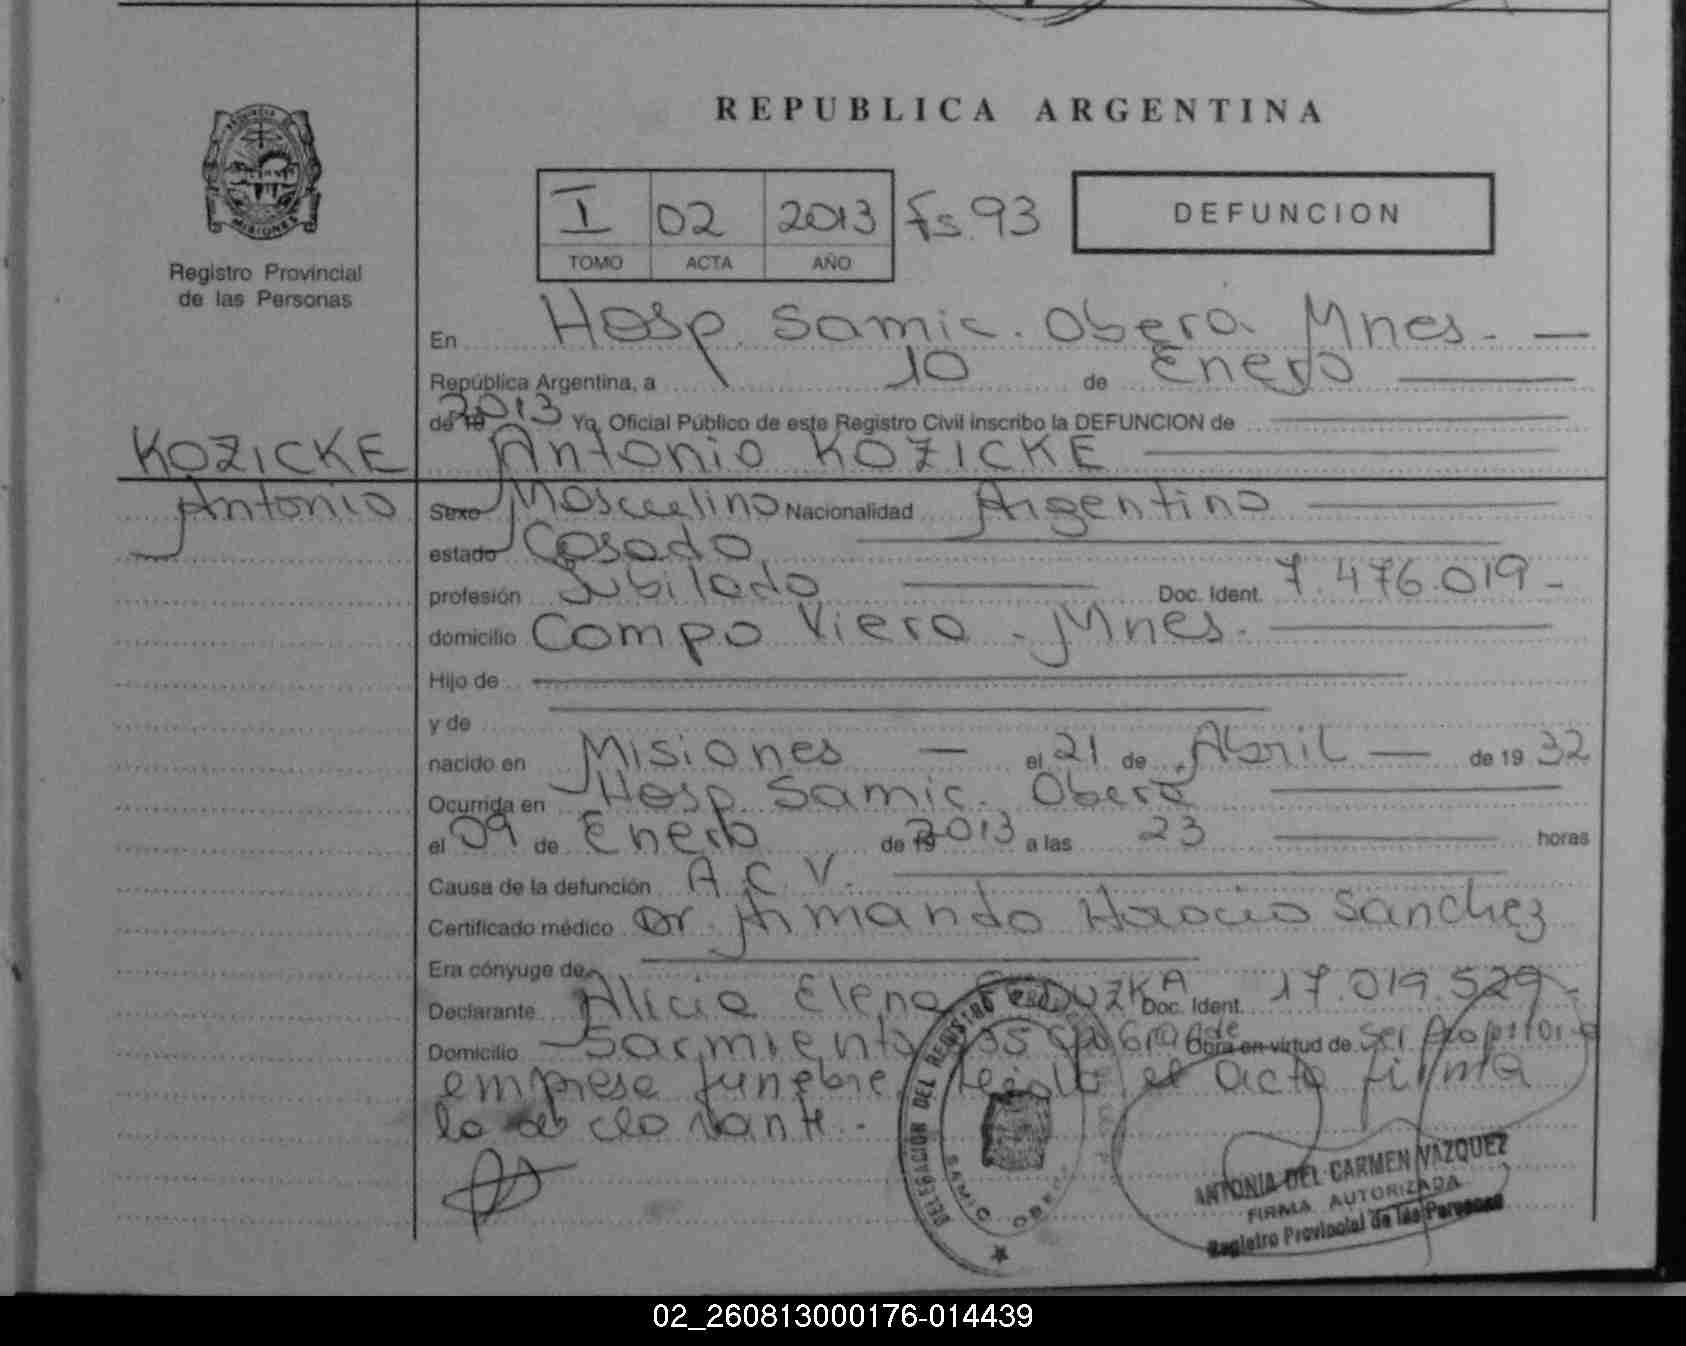 REPUBLICA ARGENTINA
PROVINCIA
MISIONES
Registro Provincial
de las Personas
I 02 2013 Fs. 93
TOMO ACTA AÑO
DEFUNCION
En Hosp. Samic. Oberá Mnes.
República Argentina, a 10 de Enero
de 19 2013 Yo, Oficial Público de este Registro Civil inscribo la DEFUNCION de
KOZICKE Antonio KOZICKE
Antonio Sexo Masculino Nacionalidad Argentino
estado Casado
profesión Jubilado Doc. Ident. 7.476.019-
domicilio Campo Viera - Mnes.
Hijo de
y de
nacido en Misiones el 21 de Abril de 19 32
Ocurrida en Hosp. Samic. Oberá
el 09 de Enero de 19 2013 a las 23 horas
Causa de la defunción A.C.V.
Certificado médico Dr. Armando Horacio Sanchez
Era cónyuge de
Declarante Alicia Elena Doc. Ident. 17.019.529-
Domicilio Sarmiento Obra en virtud de ser
empresa funebre el acta firma
la declarante.
DELEGACION DEL REGISTRO
SAMIC OBERA
ANTONIA DEL CARMEN VAZQUEZ
FIRMA AUTORIZADA
Registro Provincial de las Personas
02_260813000176-014439